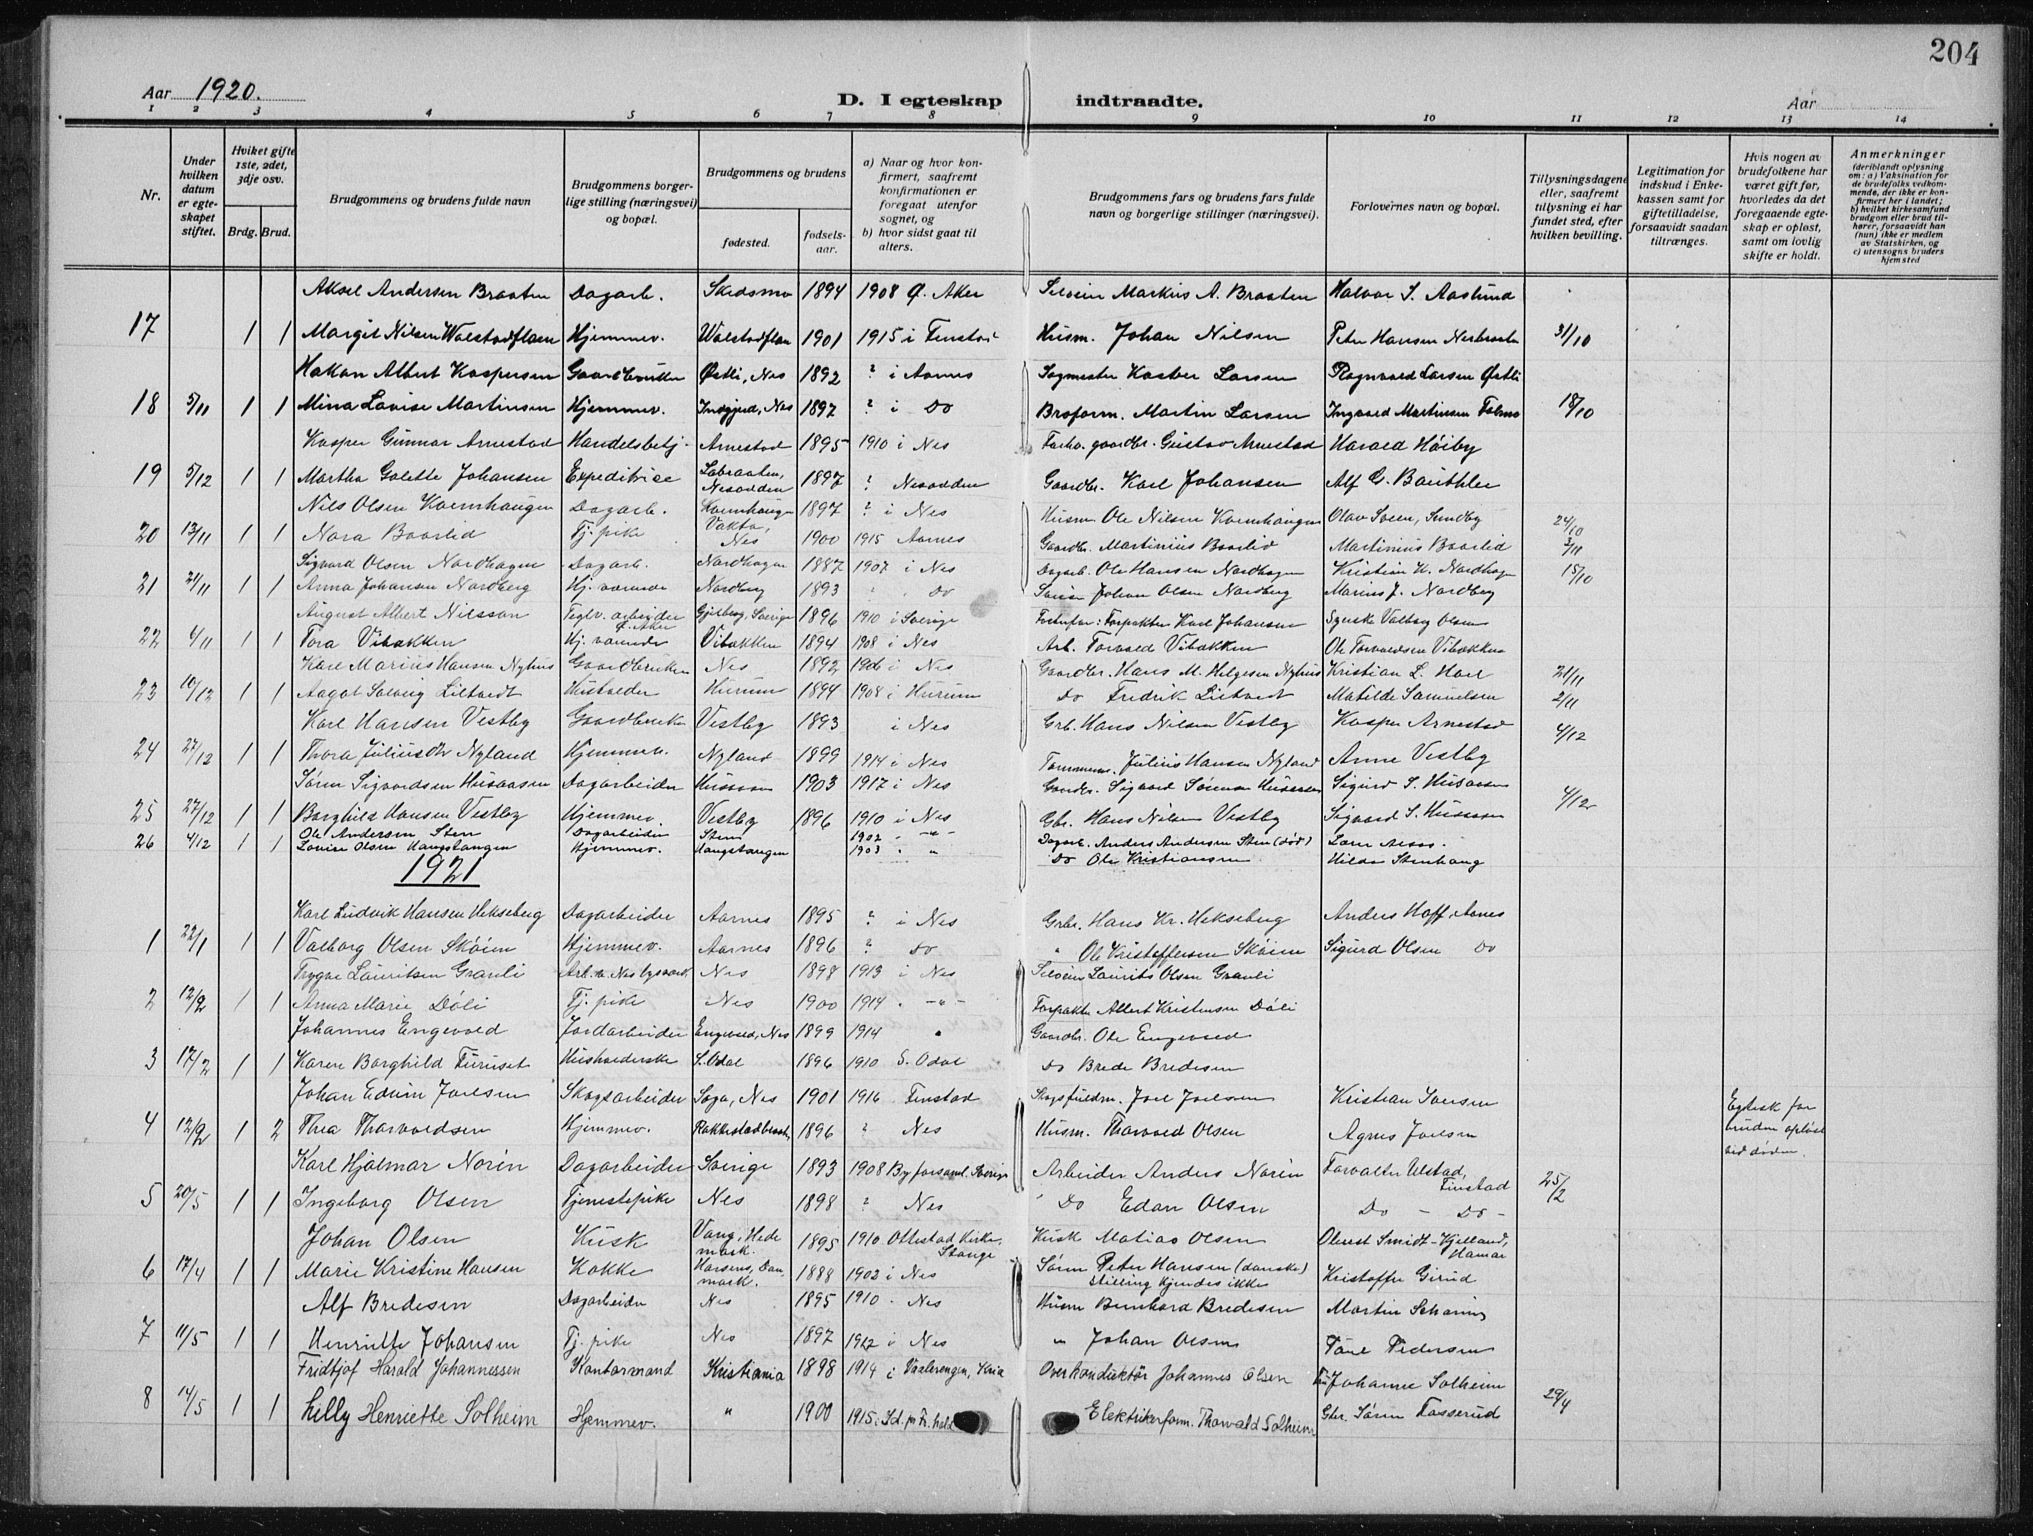 204
Aar 1920.
D. I egteskap indtraadte.
Aar
1 2 3 4 5 6 7 8 9 10 11 12 13 14
Nr.
Under hvilken datum er egteskapet stiftet.
Hviket gifte 1ste, 2det, 3dje osv.
Brdg. Brud.
Brudgommens og brudens fulde navn
Brudgommens borgerlige stilling (næringsvei) og bopæl.
Brudgommens og brudens
fødested.
fødselsaar.
a) Naar og hvor konfirmert, saafremt konfirmationen er foregaat utenfor sognet, og
b) hvor sidst gaat til alters.
Brudgommens fars og brudens fars fulde navn og borgerlige stillinger (næringsvei).
Forlovernes navn og bopæl.
Tillysningsdagene eller, saafremt tillysning ei har fundet sted, efter hvilken bevilling.
Legitimation for indskud i Enkekassen samt for giftetilladelse, forsaavidt saadan tiltrænges.
Hvis nogen av brudefolkene har været gift før, hvorledes da det foregaaende egteskap er opløst, samt om lovlig skifte er holdt.
Anmerkninger
(deriblandt oplysning om: a) Vaksination for de brudefolks vedkommende, der ikke er konfirmert her i landet; b) hvilket kirkesamfund brudgom eller brud tilhører, forsaavidt han (hun) ikke er medlem av Statskirken, og c) utensogns bruders hjemsted
Aksel Andersen Braaten Dagarb. Skedsmo 1894 1908 Ø. Aker Markus A. Braaten Halvor S. Aaslund
17 1 1 Margit Nilsen Walstadflaen Hjemmev. Walstadflaen 1901 1915 i Fenstad Husm. Johan Nilsen Peter Hansen Nesbraaten 31/10
Hakon Albert Kaspersen Gaardbruker Østli, Nes 1892 ? i Aarnes Sagmester Kasber Larsen Ragnvald Larsen Østli
18 5/11 1 1 Mina Lovise Martinsen Hjemmev. Nes 1897 ? i Do Broform. Martin Larsen Ingvald Martinsen 18/10
Kasper Gunnar Arnestad Handelsbetj. Arnestad 1895 1910 i Nes Forhv. gaardbr. Gustav Arnestad Harald Høiby
19 5/12 1 1 Martha Galette Johansen Expeditrice Labraaten, Nesodden 1897 ? Nesodden Gaardbr. Karl Johansen Alf G. Bauthler
Nils Olsen Kvernhaugen Dagarb. Kvernhaugen 1897 ? i Nes Husm Ole Nilsen Kvernhaugen Olav Sveen, Sundby 24/10
20 13/11 1 1 Nora Baarlid Tj. pike Vakta, Nes 1900 1915 Aarnes Gaardbr. Martinius Baarlid Martinius Baarlid 3/11
Sigvard Olsen Nordhagen Dagarb. Nordhagen 1887 1907 i Nes Dagarb. Ole Hansen Nordhagen Kristian K. Nordhagen 15/10
21 21/11 1 1 Anna Johansen Nordberg Hj. værende Nordberg 1893 " Do Johan Olsen Nordberg Marius J. Nordberg
August Albert Nilsson Teglv. arbeider Ø. Aker Sverige 1896 1910 i Sverige Forpakter Karl Johansen Valborg Olsen
22 4/11 1 1 Tora Vibakken Hj. værende Vibakken 1894 1908 i Nes Arb. Torvald Vibakken Ole Torvaldsen Vibakken
Karl Marius Hansen Nyhus Gaardbruker Nes 1892 1906 i Nes Gaardbr. Hans M. Helgesen Nyhus Kristian L. 21/11
23 10/12 1 1 Aagot Solveig Liltvedt Husholder Hurum 1894 1908 i Hurum Do Fredrik Liltvedt Matilde Samuelsen 2/11
Karl Hansen Vestby Gaardbruker Vestby 1893 i Nes Grb. Hans Nilsen Vestby Kasper Arnestad 4/12
24 27/12 1 1 Thora Juliusdtr Nyland Hjemmev. Nyland 1899 1914 i Nes Tømmerm. Julius Hansen Nyland Anne Vestby
Søren Sigvardsen Husaasen Dagarbeider Husaasen 1903 1917 i Nes Gaardbr. Sigvard Sørensen Husaasen Sigurd S. Husaasen
25 27/12 1 1 Borghild Hansen Vestby Hjemmev. Vestby 1896 1910 i Nes Gbr. Hans Nilsen Vestby Sigvard S. Husaasen 4/12
26 4/12 1 1 Ole Andersen Sten Dagarbeider Sten 1902 " -"- Dagarb. Anders Andersen Sten (død)
Lovise Olsen Haugstangen Hjemmev. Haugstangen 1903 " " Do Ole Kristiansen Hilda Stenhaug
1921
Karl Ludvik Hansen Hekseberg Dagarbeider Aarnes 1895 ? i Nes Grbr. Hans Kr. Hekseberg Anders Hoff, Aarnes
1 22/1 1 1 Valborg Olsen Skøien Hjemmev. Aarnes 1896 ? Do " Ole Kristoffersen Skøien Sigurd Olsen Do
Trygve Lauritsen Granli Nes 1898 1913 i Nes Laurits Olsen Granli
2 12/2 1 1 Anna Marie Døli Tj. pike Nes 1900 1914 " -"- Forpakter Albert Kristensen Døli
Johannes Engevold Jordarbeider Engevold, Nes 1899 1914 " Gaardbr. Ole Engevold
3 17/2 1 1 Karen Borghild Furuset Husholderske S. Odal 1896 1910 S. Odal Do Brede Bredesen
Johan Edvin Joelsen Skogsarbeider Saga, Nes 1901 1916 Fenstad Joel Joelsen Kristian Iversen
4 12/2 1 2 Thea Thorvaldsen Hjemmev. 1896 ? Nes Husm. Thorvald Olsen Agnes Joelsen Egtesk for bruden opløst ved døden.
Karl Hjalmar Norén Dagarbeider Sverige 1893 1908 By forsaml. Sverige Arbeider Anders Norén Forvalter Ulstad, Finstad
5 20/5 1 1 Ingeborg Olsen Tjenestepike Nes 1898 ? Nes Do Edan Olsen Do - Do - 25/2
Johan Olsen Kusk Vang, Hedemark. 1895 1910 Ottestad Kirke, Stange Kusk Matias Olsen Oberst Smidt-Kjelland, Hamar
6 17/4 1 1 Marie Kristine Hansen Kokke Horsens, Danmark. 1888 1902 i Nes Søren Peter Hansen (danske) stilling kjendes ikke Kristoffer Gjerud
Alf Bredesen Dagarbeider Nes 1895 1910 - Nes Husm Bernhard Bredesen Martin
7 11/5 1 1 Henriette Johansen Tj. pike Nes 1897 1912 i Nes " Johan Olsen Pedersen
Fridtjof Harald Johannessen Kontormand Kristiania 1898 1914 i Vaalerengen, Kria Overkonduktør Johannes Olsen Fru Johanne Solheim
8 14/5 1 1 Lilly Henriette Solheim Hjemmev. " 1900 1915 i Id. pr Fr. hald Elektrikerform. Thorvald Solheim Gbr. Søren Fosserud 29/4